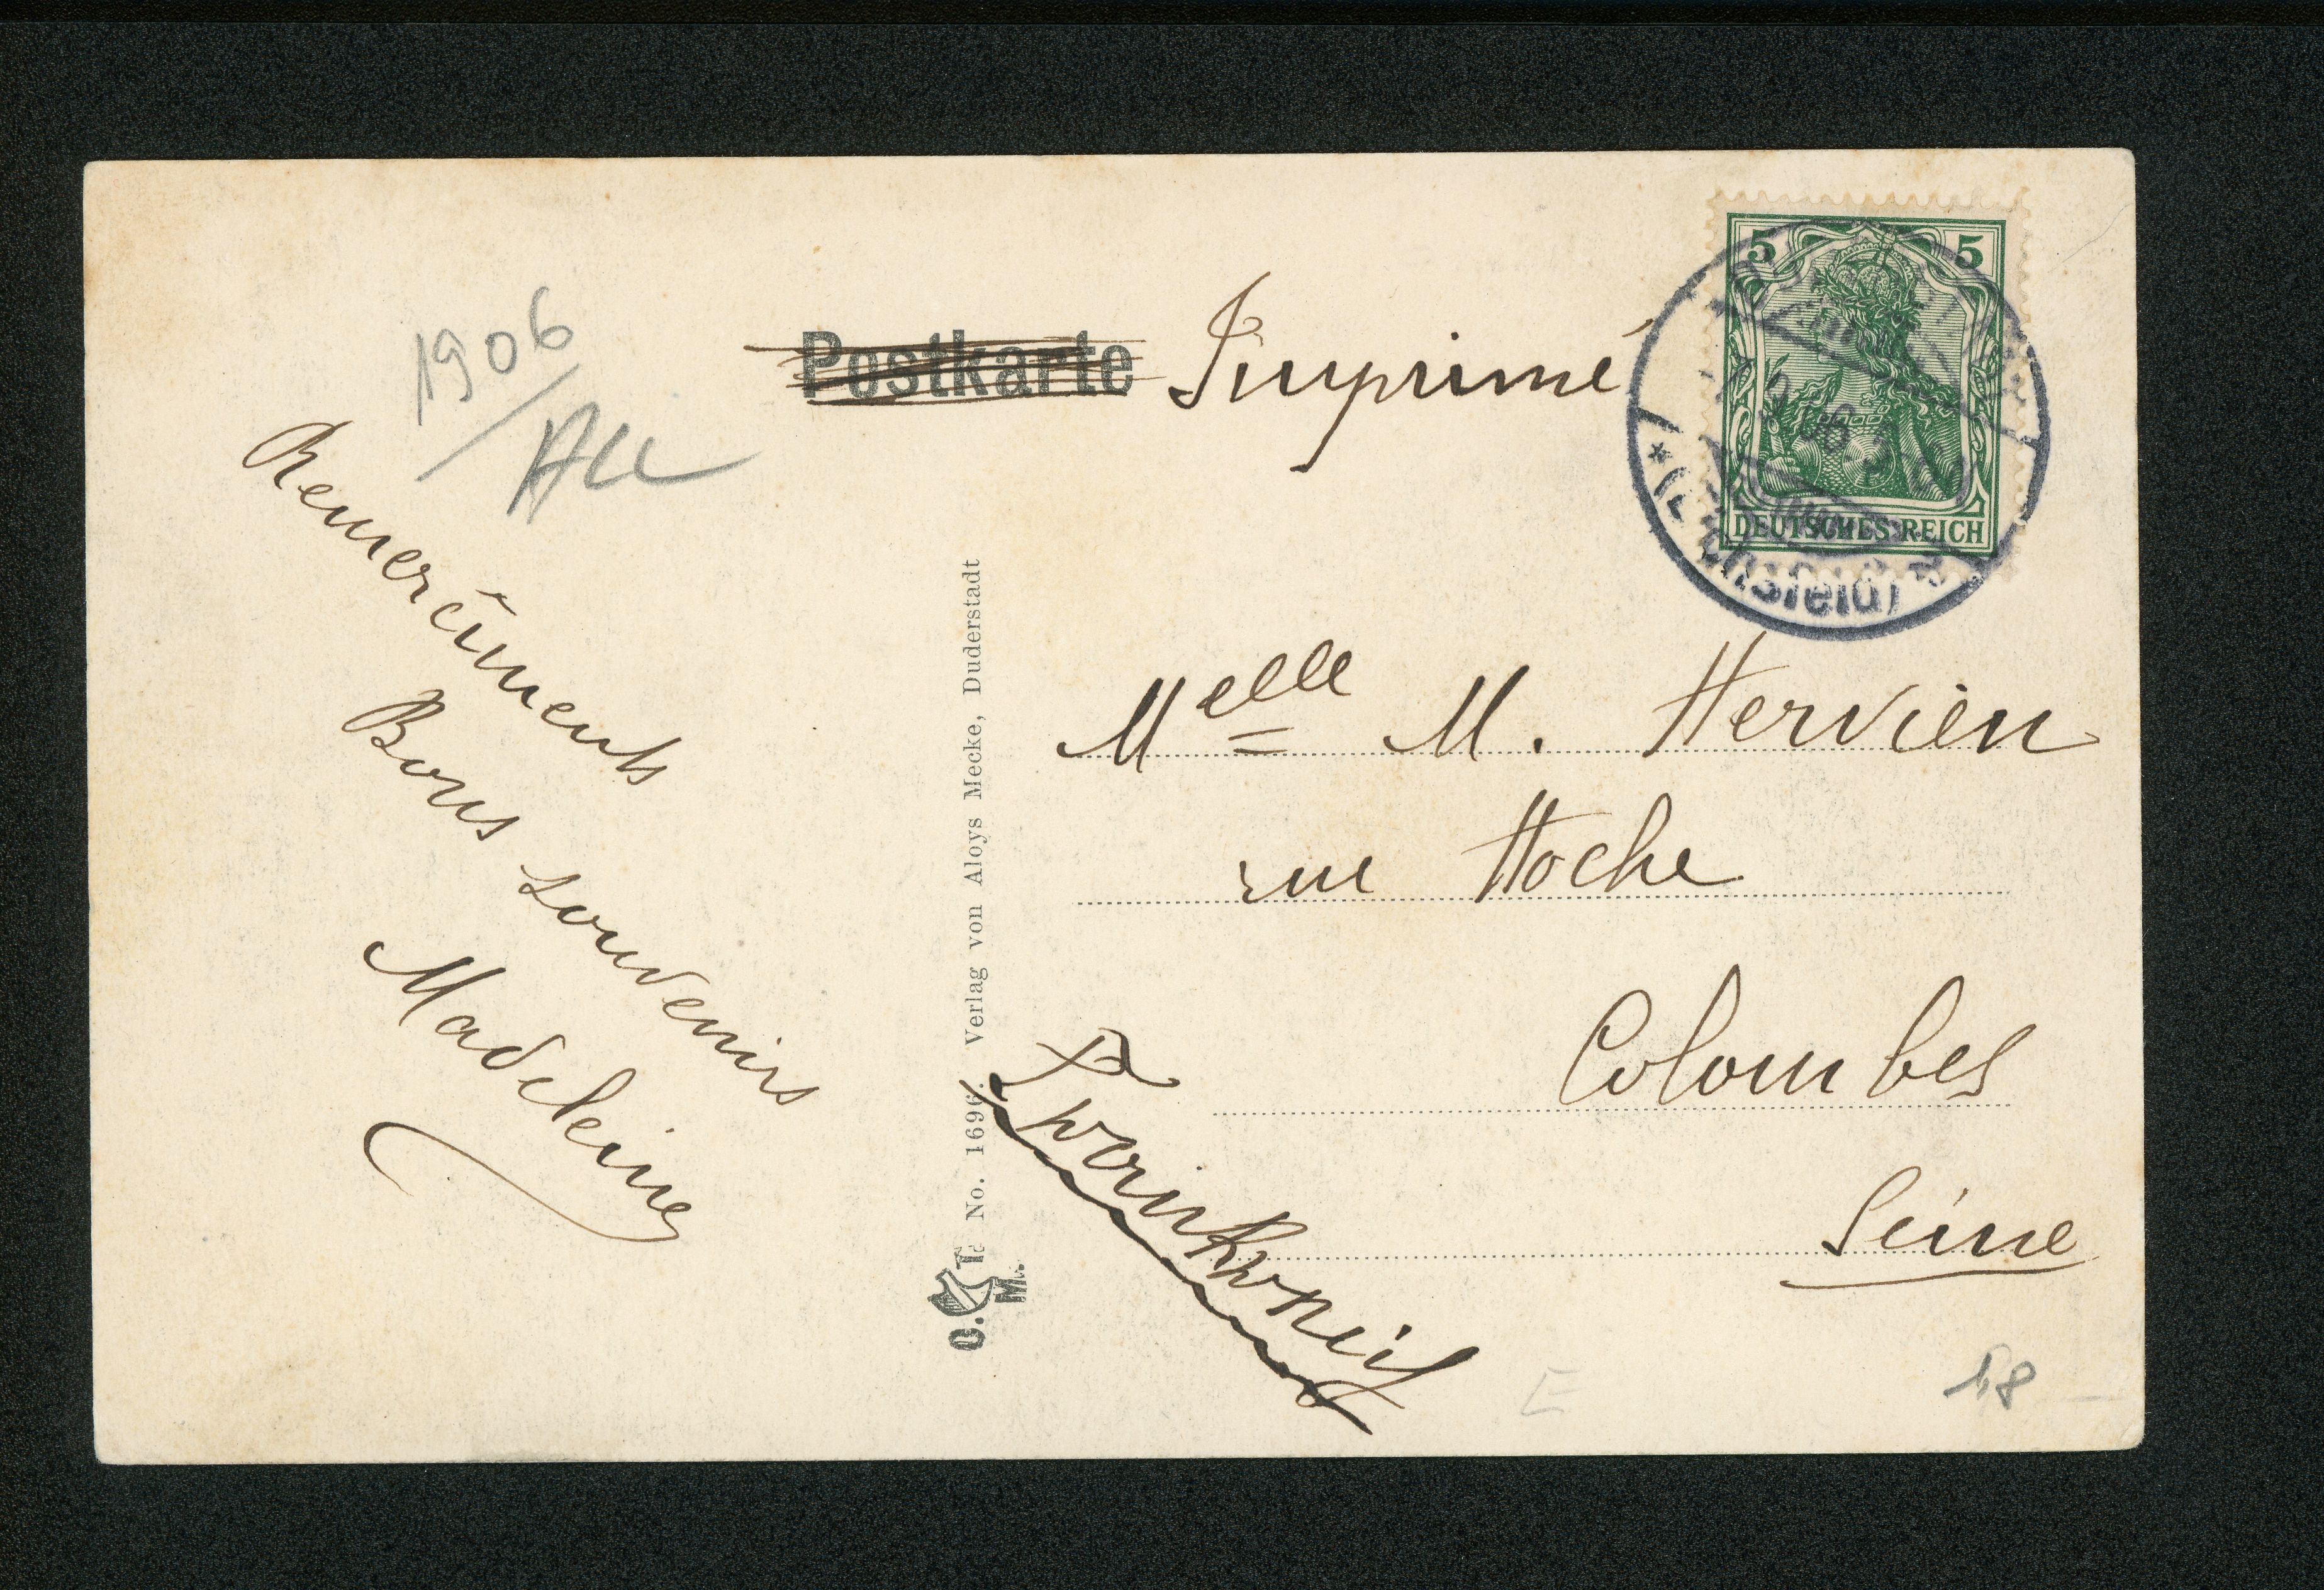 Postkarte Imprimé
5 5
DEUTSCHES REICH
9 06
(Eichsfeld)
1906
All
Remerciments
Bons souvenirs
Madeleine
No. 1696. Verlag von Aloys Mecke, Duderstadt
Melle M. Hervieu
rue Hoche
Colombes
Seine
Frankreich
E
18